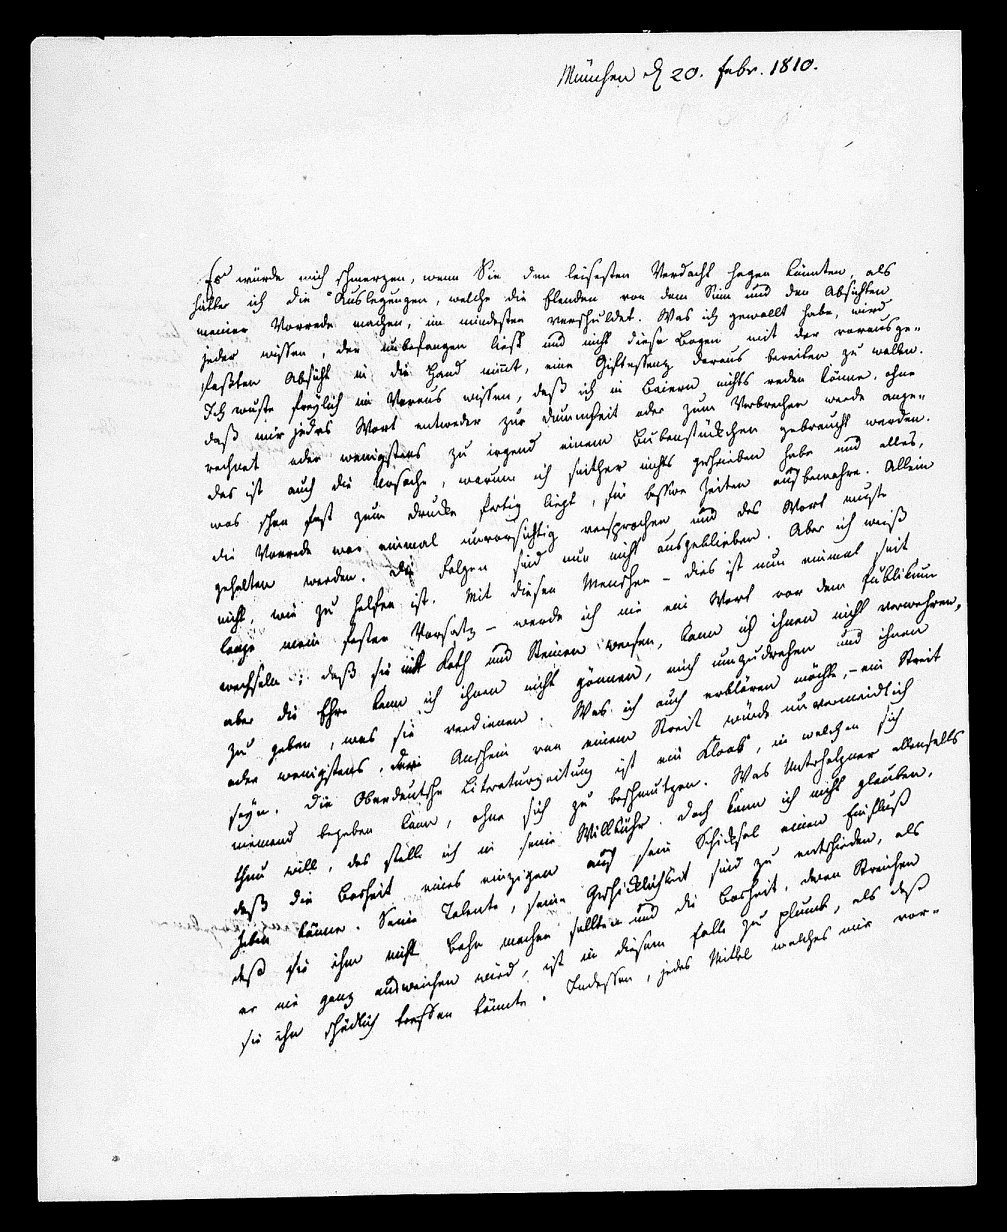 München d 20. Febr. 1810.
Es würde mich schmerzen, wenn Sie den leisesten Verdacht hegen könnten, als
hätte ich die Auslegungen, welche die Elenden von dem Sinn und den Absichten
meiner Vorrede machen, im mindesten verschuldet. Was ich gewollt habe, wird
jeder wissen, der unbefangen liest und nicht diese Bogen mit der vorausge-
faßten Absicht in die Hand nimt, eine Giftessenz daraus bereiten zu wollen.
Ich muste freylich im Voraus wissen, daß ich in Baiern nichts reden könne, ohne
daß mir jedes Wort entweder zur Dummheit oder zum Verbrechen werde ange-
rechnet oder wenigstens zu irgend einem Bubenstückchen gebraucht werden.
Das ist auch die Ursache, warum ich seither nichts geschrieben habe und alles,
was schon fast zum Drucke fertig liegt, für bessre Zeiten aufbewahre. Allein
die Vorrede war einmal unvorsichtig versprochen und das Wort muste
gehalten werden. Die Folgen sind nun nicht ausgeblieben. Aber ich weiß
nicht, wie zu helfen ist. Mit diesen Menschen – dies ist nun einmal seit
lange mein fester Vorsatz – werde ich nie ein Wort vor dem Publikum
wechseln; daß sie mit Koth und Steinen werfen, kann ich ihnen nicht verwehren,
aber die Ehre kann ich ihnen nicht gönnen, mich umzudrehen und ihnen
zu geben, was sie verdienen. Was ich auch erklären möchte, – ein Streit
oder wenigstens der Anschein von einem Streit würde unvermeidlich
seyn. Die Oberdeutsche Literaturzeitung ist ein Kloak, in welchen sich
niemand begeben kann, ohne sich zu beschmutzen. Was Unterholzner allenfalls
thun will, das stelle ich in seine Willkühr. Doch kann ich nicht glauben,
daß die Bosheit eines einzigen auf sein Schicksal einen Einfluß
haben könne. Seine Talente, seine Geschicklichkeit sind zu entschieden, als
daß sie ihm nicht Bahn machen sollten und die Bosheit, deren Streichen
er nie ganz ausweichen wird, ist in diesem Falle zu plump, als daß
sie ihn schädlich treffen könnte. Indessen, jedes Mittel welches mir vor-